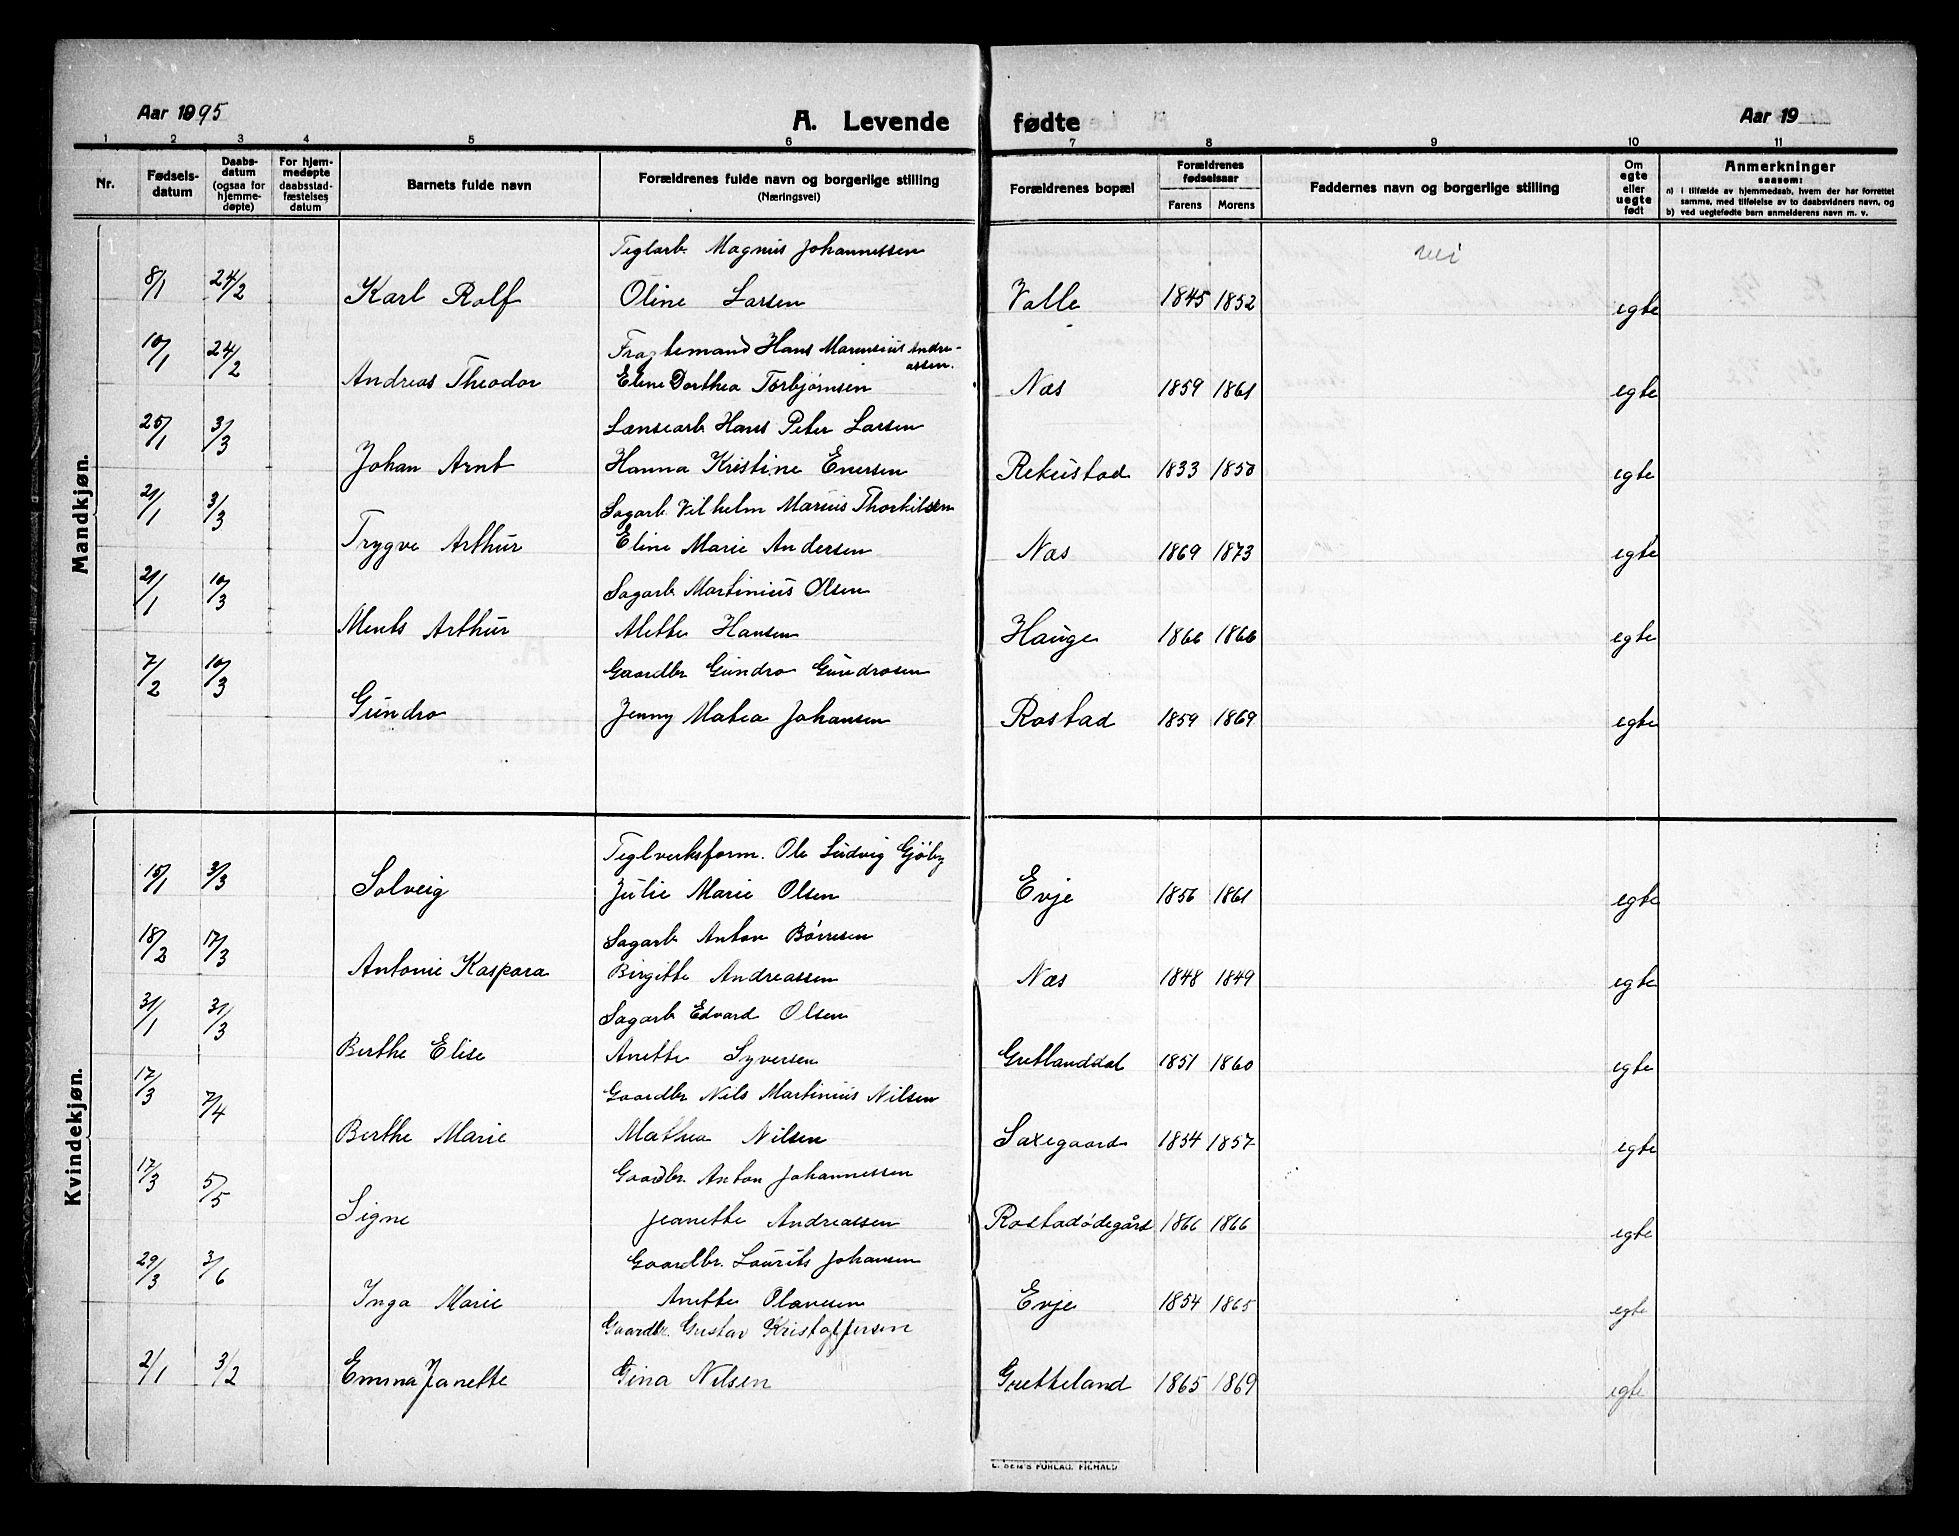 Aar 1895
A. Levende
fødte
Aar 19
1 2 3 4 5 6 7 8 9 10 11
Nr.
Fødsels-
datum
Daabs-
datum
(ogsaa for
hjemme-
døpte)
For hjem-
medøpte
daabsstad-
fæstelses
datum
Barnets fulde navn
Forældrenes fulde navn og borgerlige stilling
(Næringsvei)
Forældrenes bopæl
Forældrenes
fødselsaar
Farens Morens
Faddernes navn og borgerlige stilling
Om
egte
eller
uegte
født
Anmerkninger
saasom:
a) i tilfælde av hjemmedaab, hvem der har forrettet
samme, med tilføielse av to daabsvidners navn, og
b) ved uegtefødte barn anmelderens navn m. v.
Mandkjøn.
Teglarb. Magnus Johannessen
8/1 24/2 Karl Rolf Oline Larsen Valle 1845 1852 egte
10/1 24/2 Fragtemand Hans Marensius Andre-
assen.
Andreas Theodor Eline Dorthea Torbjørnsen Næs 1859 1861 egte
25/1 3/3 Lænsearb. Hans Peter Larsen
Johan Arnt Hanna Kristine Enersen Rekustad 1833 1850 egte
21/1 3/3 Sagarb. Vilhelm Marius Thorkilsen
Trygve Arthur Eline Marie Andersen Næs 1869 1873 egte
21/1 10/3 Sagarb. Martinius Olsen
Ments Arthur Alette Hansen Hauge 1866 1866 egte
7/2 10/3 Gaardbr. Gundro Gundrosen
Gundro Jenny Matea Johansen Rostad 1859 1869 egte
Kvindekjøn.
Teglverksform. Ole Ludvig Gjøby
15/1 3/3 Solveig Julie Marie Olsen Evje 1856 1861 egte
18/2 17/3 Sagarb. Anton Børresen
Antonie Kaspara Birgitte Andreassen Næs 1848 1849 egte
31/1 31/3 Sagarb. Edvard Olsen
Berthe Elise Anette Syversen Gretlanddal 1851 1860 egte
17/3 7/4 Gaardbr. Nils Martinius Nilsen
Berthe Marie Mathea Nilsen Saxegaard 1854 1857 egte
17/3 5/5 Gaardbr. Anton Johannessen
Signe Jeanette Andreassen Rostadødegård 1866 1866 egte
29/3 3/6 Gaardbr. Laurits Johansen
Inga Marie Anette Olavesen Evje 1854 1865 egte
Gaardbr. Gustav Kristoffersen
2/1 3/2 Emma Janette Gina Nilsen Gretteland 1865 1869 egte
E. SEM'S FORLAG, FR.HALD